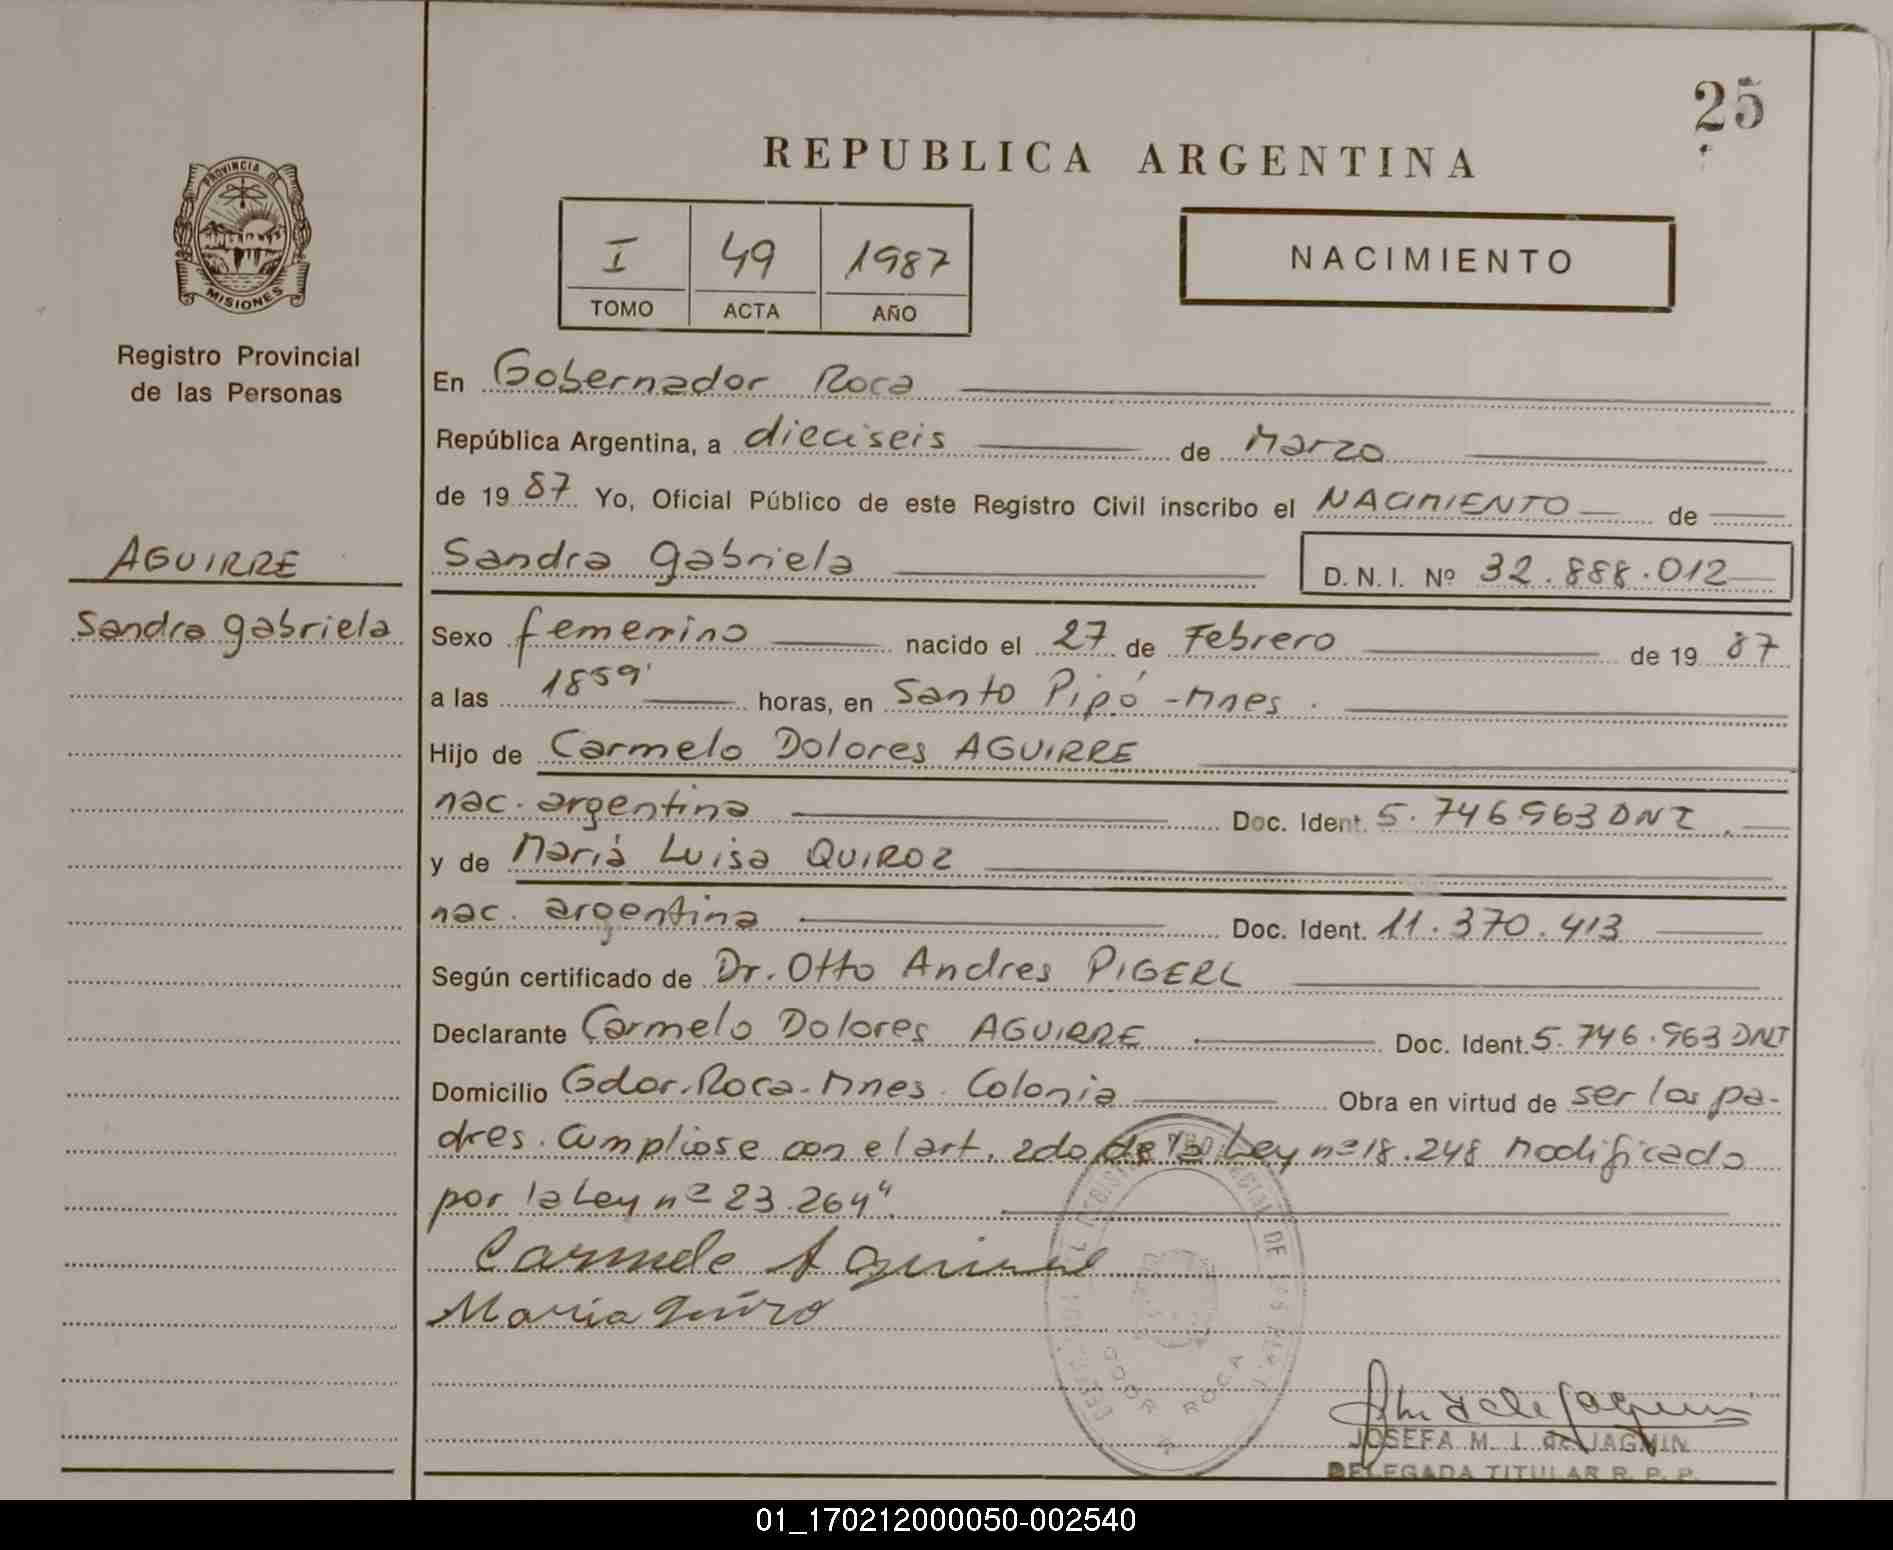 25
REPUBLICA ARGENTINA
PROVINCIA DE
MISIONES
Registro Provincial
de las Personas
I 49 1987
TOMO ACTA AÑO
NACIMIENTO
En Gobernador Roca
República Argentina, a dieciseis de Marzo
de 19 87 Yo, Oficial Público de este Registro Civil inscribo el NACIMIENTO de
AGUIRRE
Sandra Gabriela D. N. I. Nº 32.888.012
Sandra Gabriela
Sexo femenino nacido el 27 de Febrero de 19 87
a las 1859' horas, en Santo Pipó - Mnes.
Hijo de Carmelo Dolores AGUIRRE
nac. argentina Doc. Ident. 5.746.963 DNI
y de María Luisa QUIROZ
nac. argentina Doc. Ident. 11.370.413
Según certificado de Dr. Otto Andres PIGERL
Declarante Carmelo Dolores AGUIRRE Doc. Ident. 5.746.963 DNI
Domicilio Gdor. Roca - Mnes. Colonia Obra en virtud de ser los pa-
dres. Cumpliose con el art. 2do de la Ley nº 18.248 modificado
por la Ley nº 23.264".
Carmelo Aguirre
Maria Quiro
GDOR ROCA
JOSEFA M. I. de JAGMIN
DELEGADA TITULAR R. P. P.
01_170212000050-002540